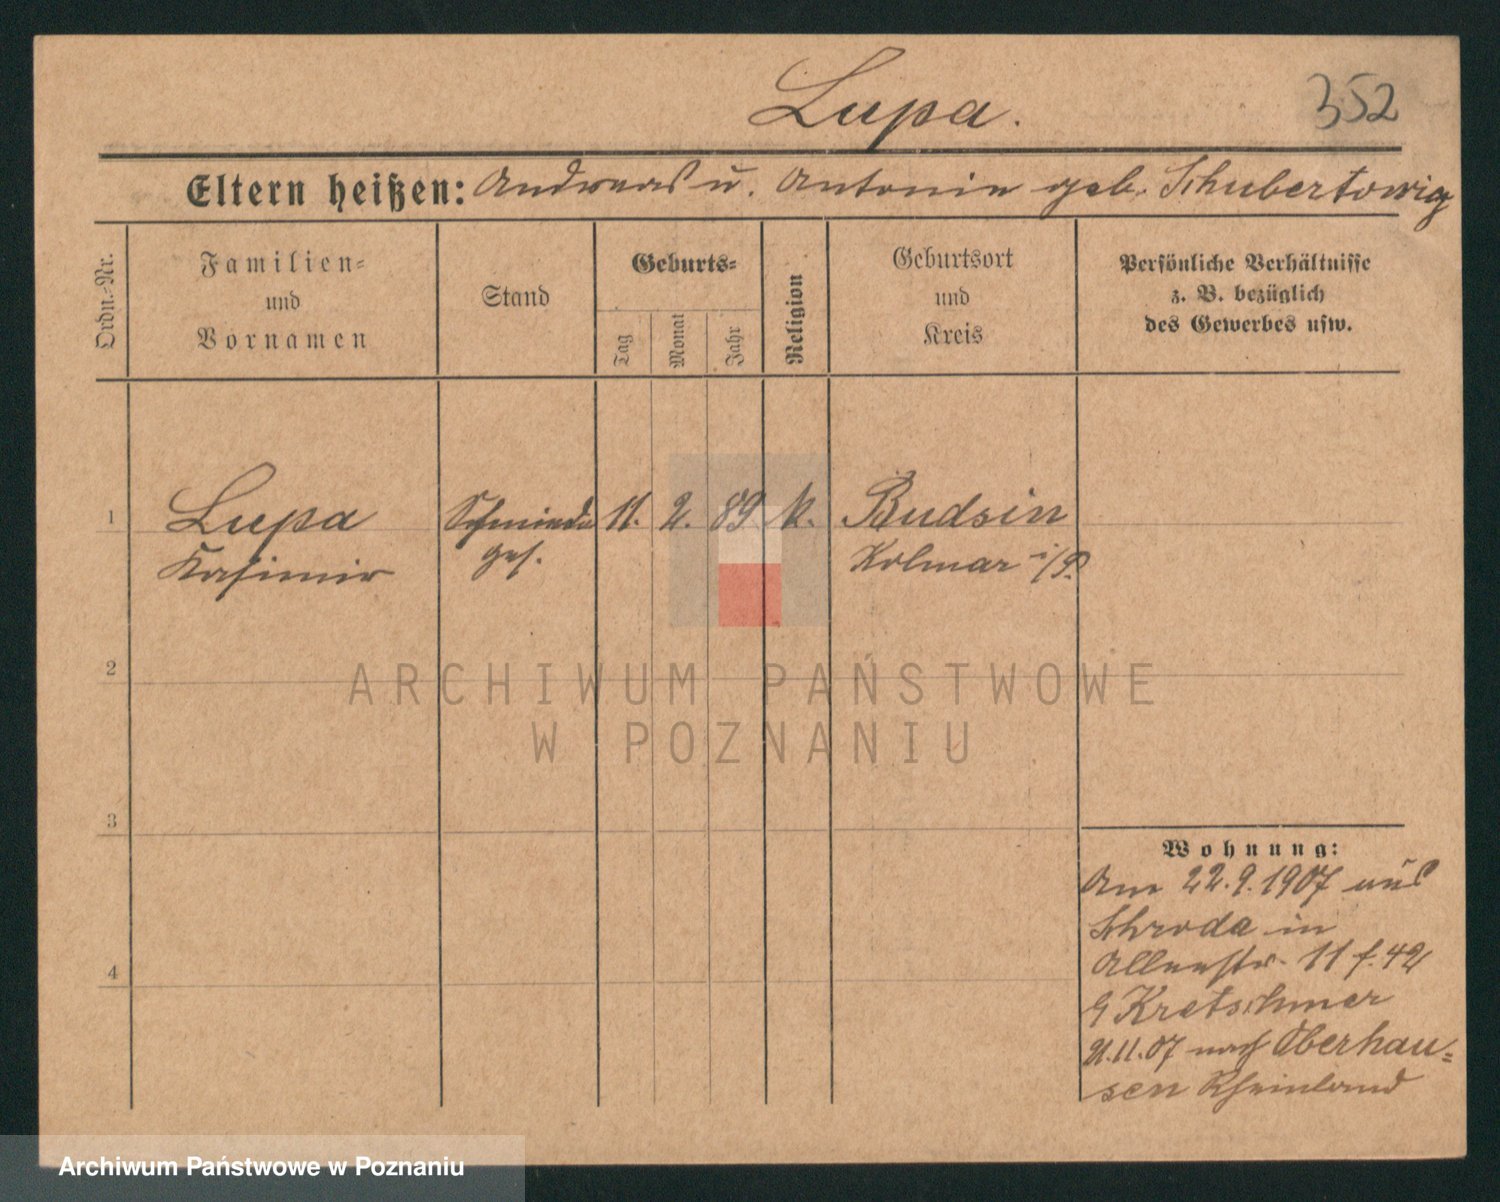 Lupa.
352
Eltern heißen: Andreas u. Antonie geb. Schubertowig
Ordn.-Nr.
Familien-
und
Vornamen
Stand
Geburts-
Tag
Monat
Jahr
Religion
Geburtsort
und
Kreis
Persönliche Verhältnisse
z. B. bezüglich
des Gewerbes usw.
1 Lupa Schmiede 11. 2. 89. k. Budsin
Kasimir ges. Kolmar i/P.
2
3
4
Wohnung:
Am 22.9.1907 aus
Schroda in
11 f. 42
Kretschmer
21.11.07 nach Oberhau-
sen Rheinland
ARCHIWUM PAŃSTWOWE
W POZNANIU
Archiwum Państwowe w Poznaniu